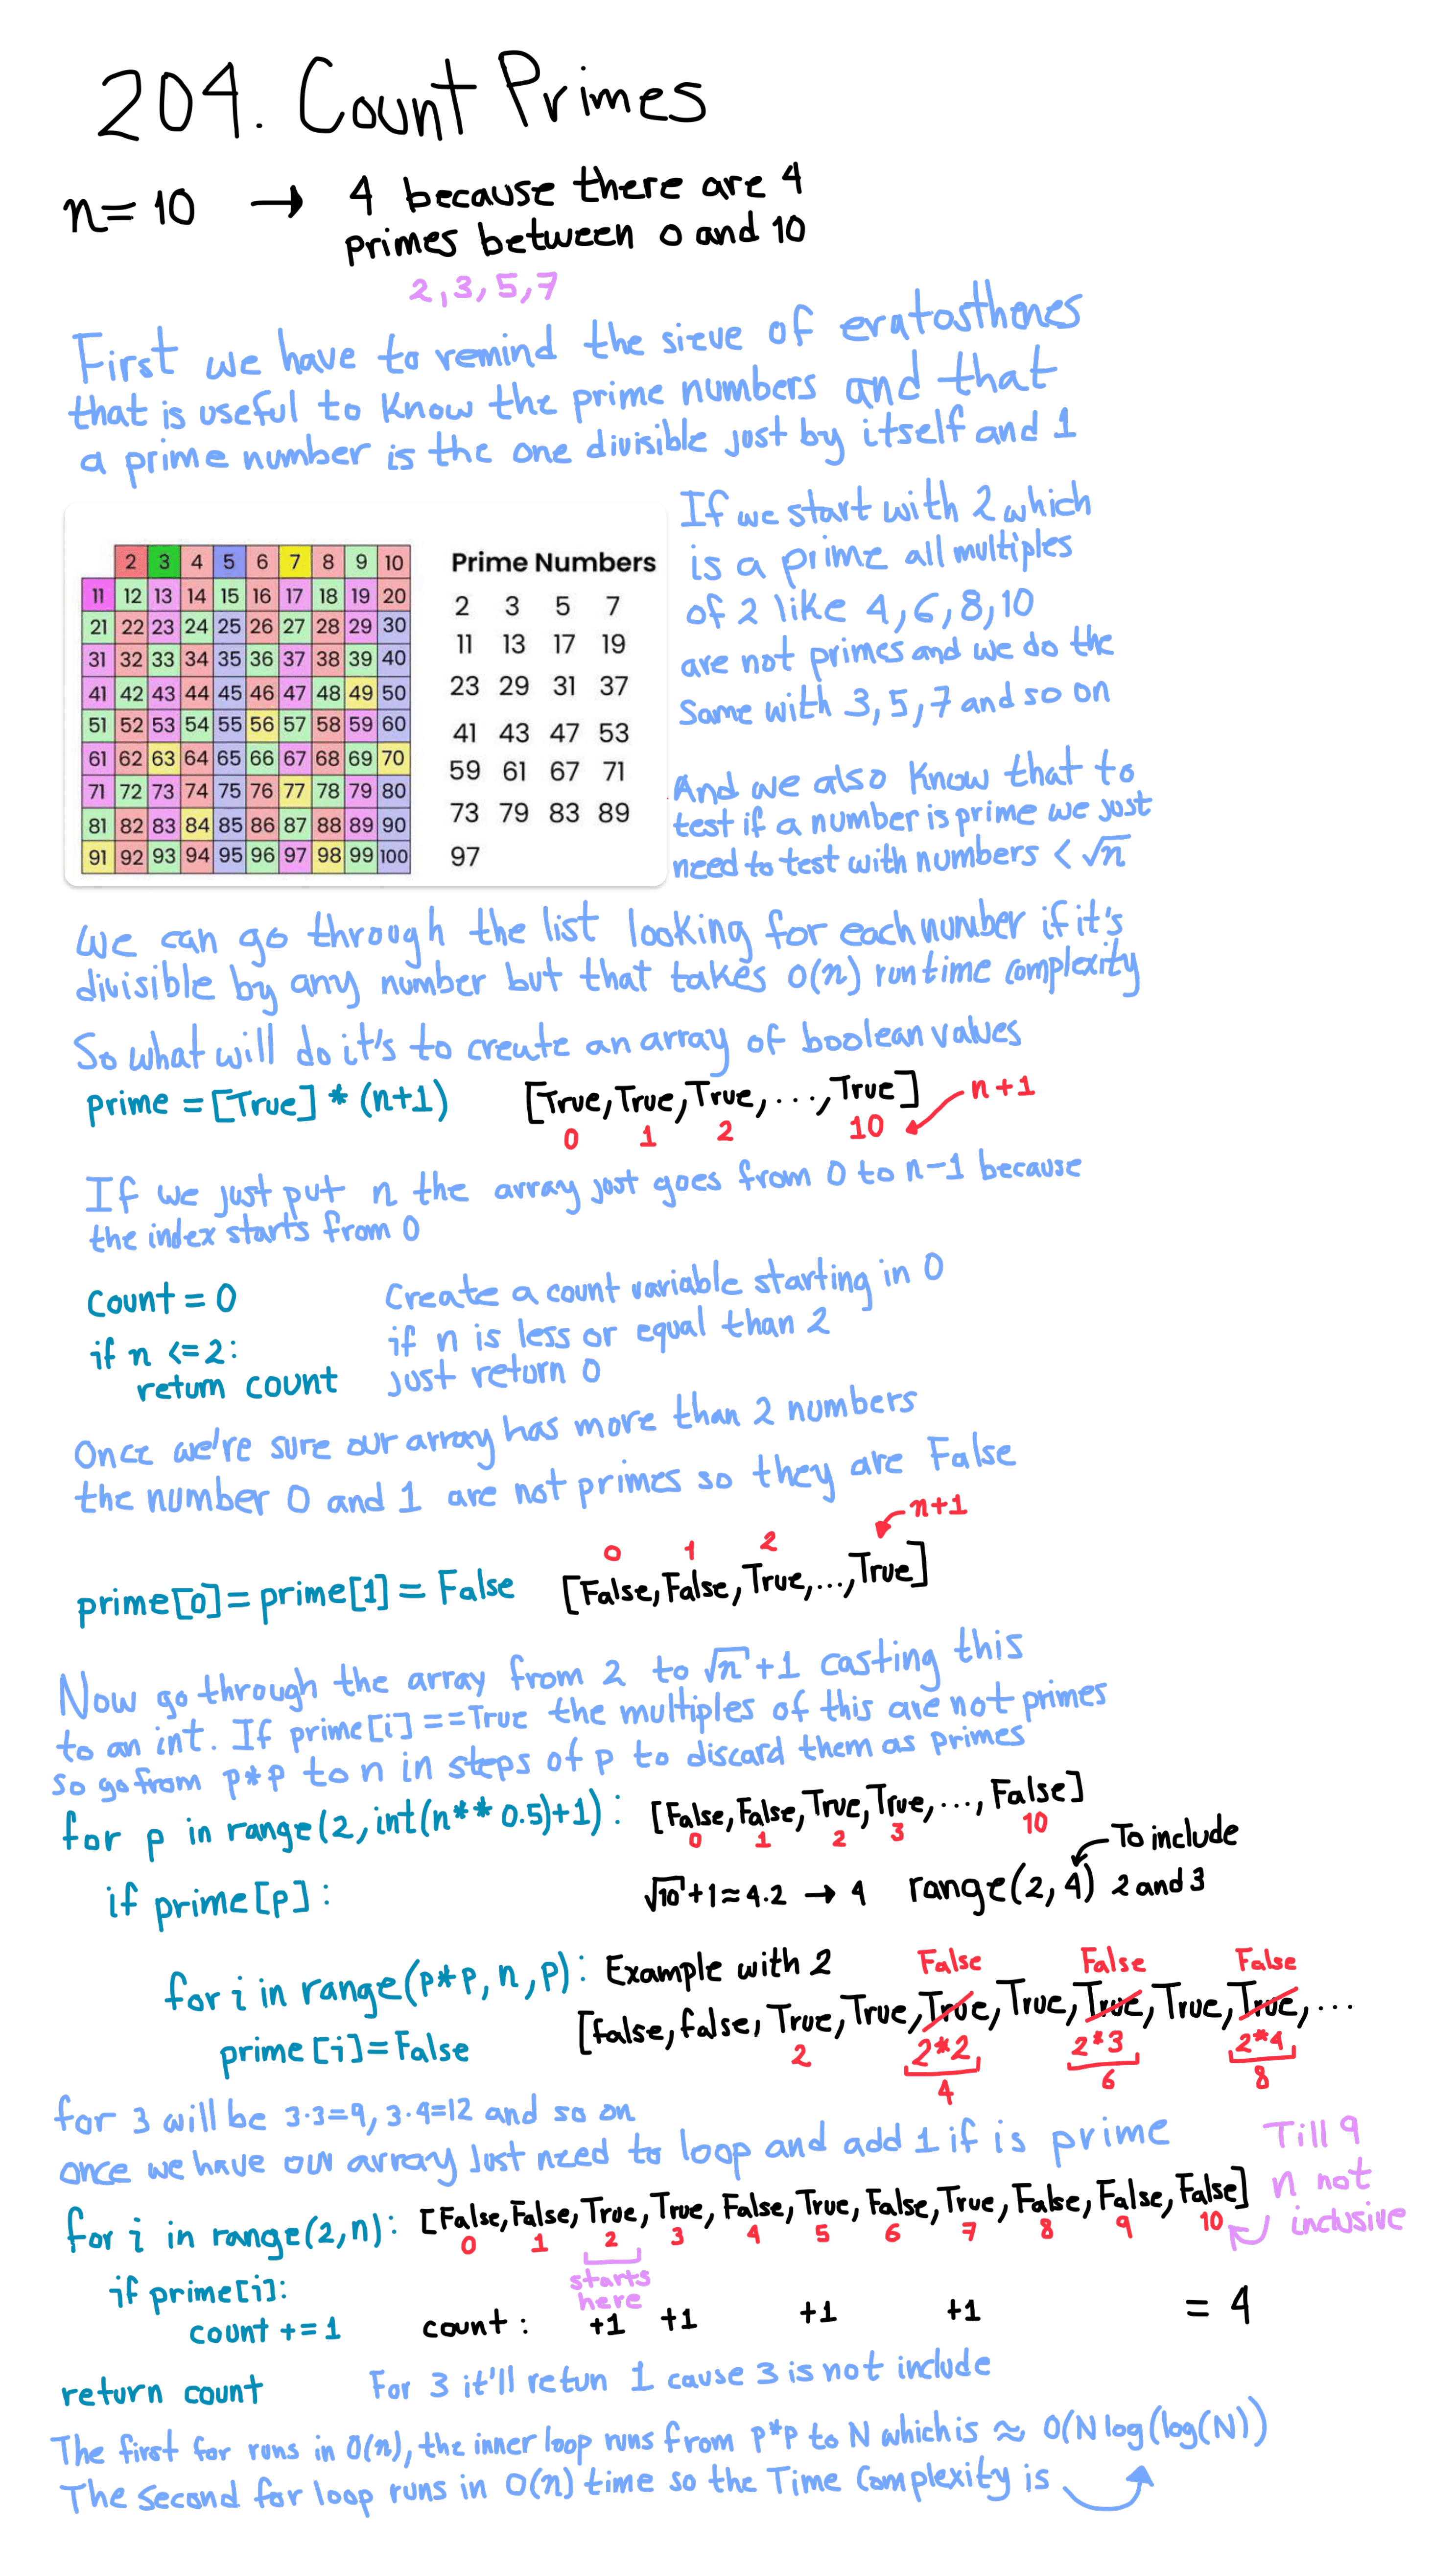 204. Count Primes
n= 10 → 4 because there are 4
primes between 0 and 10
2,3,5,7
First we have to remind the sieve of eratosthenes
that is useful to know the prime numbers and that
a prime number is the one divisible just by itself and 1
2 3 4 5 6 7 8 9 10
11 12 13 14 15 16 17 18 19 20
21 22 23 24 25 26 27 28 29 30
31 32 33 34 35 36 37 38 39 40
41 42 43 44 45 46 47 48 49 50
51 52 53 54 55 56 57 58 59 60
61 62 63 64 65 66 67 68 69 70
71 72 73 74 75 76 77 78 79 80
81 82 83 84 85 86 87 88 89 90
91 92 93 94 95 96 97 98 99 100
Prime Numbers
2 3 5 7
11 13 17 19
23 29 31 37
41 43 47 53
59 61 67 71
73 79 83 89
97
If we start with 2 which
is a prime all multiples
of 2 like 4,6,8,10
are not primes and we do the
Same with 3,5,7 and so on
And we also know that to
test if a number is prime we just
need to test with numbers < √n
We can go through the list looking for each number if it's
divisible by any number but that takes O(n) runtime complexity
So what will do it's to create an array of boolean values
prime = [True] * (n+1)
[True, True, True, ..., True] n+1
0 1 2 10
If we just put n the array just goes from 0 to n-1 because
the index starts from 0
count = 0
if n <=2:
return count
Create a count variable starting in 0
if n is less or equal than 2
just return 0
Once we're sure our array has more than 2 numbers
the number 0 and 1 are not primes so they are False
n+1
0 1 2
prime[0]=prime[1]= False [False, False, True,..., True]
Now go through the array from 2 to √n+1 casting this
to an int. If prime[i]==True the multiples of this are not primes
so go from p*p to n in steps of p to discard them as primes
for p in range(2, int(n**0.5)+1): [False, False, True, True,..., False]
0 1 2 3 10
To include
if prime[p]: √10+1≈4.2 → 4 range(2,4) 2 and 3
for i in range(p*p,n,p): Example with 2
False False False
[False, false, True, True, True, True, True, True, True,...
prime[i]=False
2 2*2 2*3 2*4
4 6 8
for 3 will be 3·3=9, 3·4=12 and so on
once we have our array Just need to loop and add 1 if is prime
Till 9
n not
inclusive
for i in range(2,n): [False, False, True, True, False, True, False, True, False, False, False]
0 1 2 3 4 5 6 7 8 9 10
starts
here
if prime[i]:
count +=1
count: +1 +1 +1 +1 = 4
return count For 3 it'll retun 1 cause 3 is not include
The first for runs in O(n), the inner loop runs from p*p to N which is ≈ O(N log(log(N))
The second for loop runs in O(n) time so the Time Complexity is